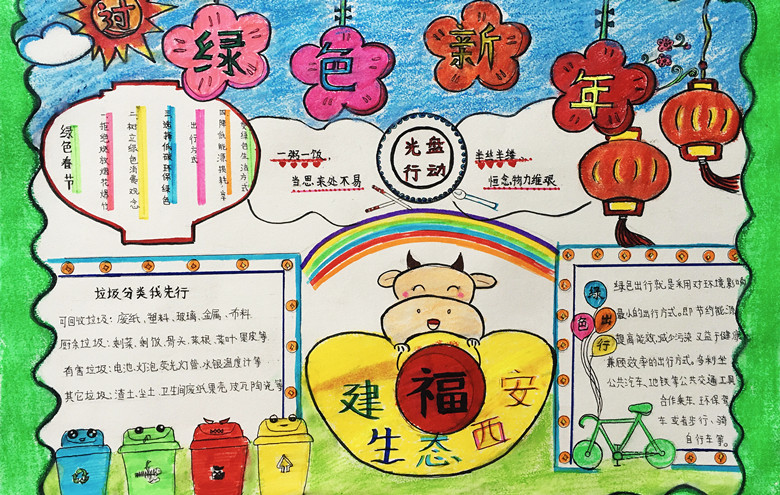 过
绿色新年
绿色春节
一拒绝燃放烟花爆竹
二树立绿色消费观念
三选择低碳环保绿色
出行方式
四降低能源损耗,享
受绿色生活方式
一粥一饭
当思,来处不易
光盘
行动
半丝半缕
恒念,物力维艰
垃圾分类我先行
可回收垃圾：废纸、塑料、玻璃、金属、布料
厨余垃圾：剩菜、剩饭、骨头、菜根、菜叶、果皮等
有害垃圾：电池、灯泡、荧光灯管、水银温度计等
其它垃圾：渣土、尘土、卫生间废纸果壳、瓦陶瓷等
福
建生态西安
绿色出行
绿色出行就是采用对环境影响
最小的出行方式。即节约能源
提高能效,减少污染、又益于健康
兼顾效率的出行方式。多利坐
公共汽车、地铁等公共交通工具
合作乘车、环保驾
车或者步行、骑
自行车等。